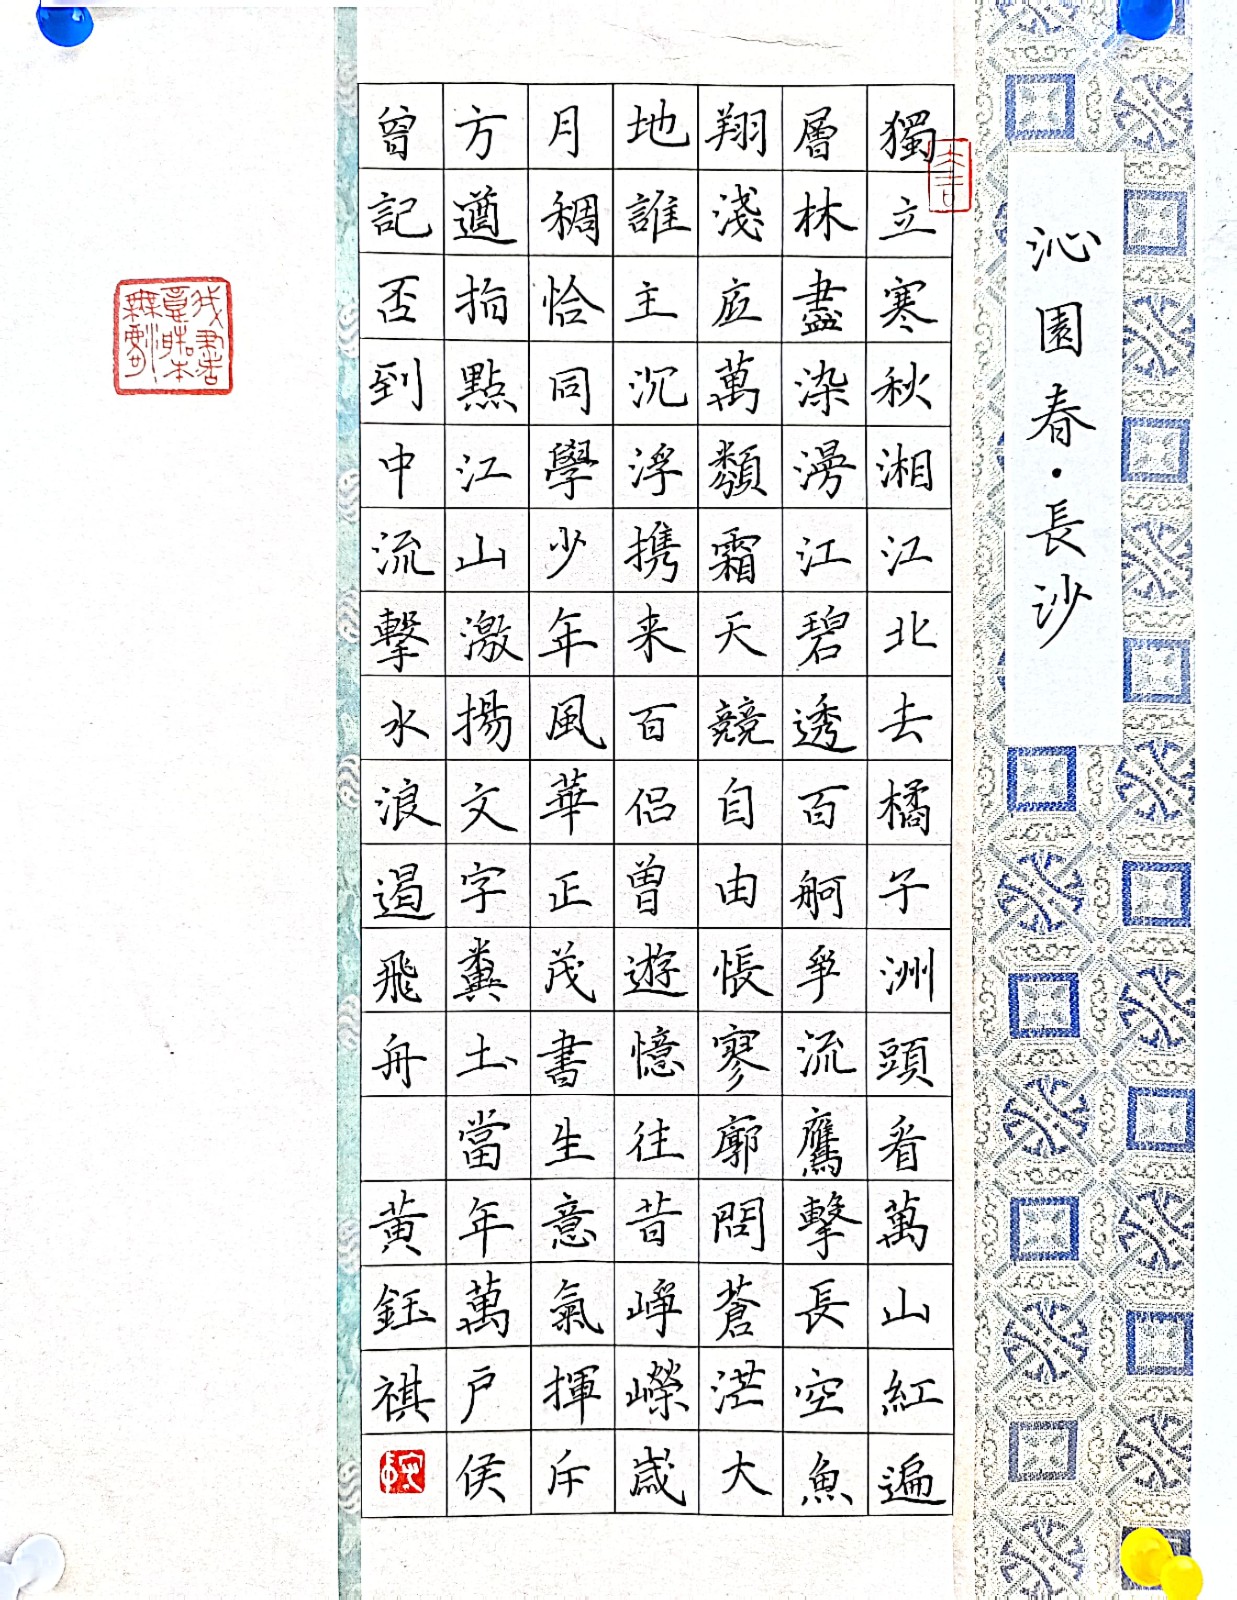 沁園春·長沙
獨立寒秋湘江北去橘子洲頭看萬山紅遍
層林盡染漫江碧透百舸爭流鷹擊長空魚
翔淺底萬類霜天競自由悵寥廓問蒼茫大
地誰主沉浮携来百侣曾遊憶往昔崢嶸歲
月稠恰同學少年風華正茂書生意氣揮斥
方遒指點江山激揚文字糞土當年萬戶侯
曾記否到中流擊水浪遏飛舟
黃鈺祺
大吉